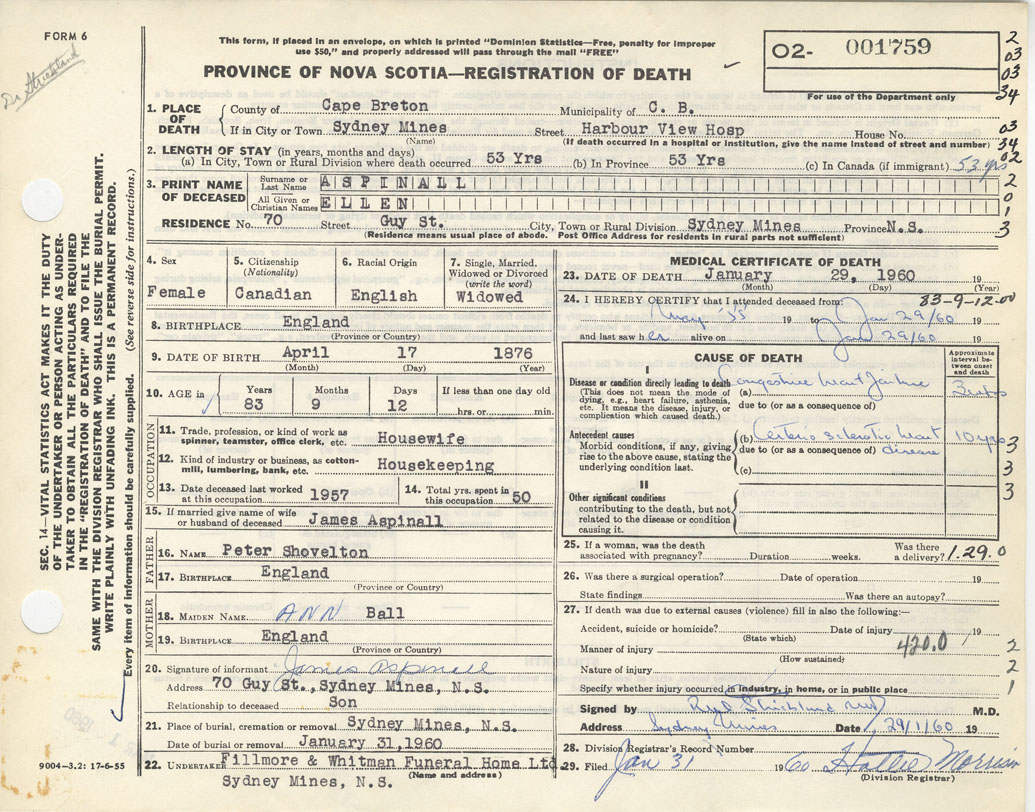 FORM 6
Dr Strickland
This form, if placed in an envelope, on which is printed "Dominion Statistics—Free, penalty for improper
use $50," and properly addressed will pass through the mail "FREE"
PROVINCE OF NOVA SCOTIA—REGISTRATION OF DEATH
02- 001759
For use of the Department only
2
03
03
34
1. PLACE OF DEATH
County of Cape Breton Municipality of C. B.
If in City or Town Sydney Mines Street Harbour View Hosp House No. 03
(Name) (If death occurred in a hospital or institution, give the name instead of street and number) 34
2. LENGTH OF STAY (in years, months and days) 02
(a) In City, Town or Rural Division where death occurred 53 Yrs (b) In Province 53 Yrs (c) In Canada (if immigrant) 53 yrs
3. PRINT NAME OF DECEASED
Surname or Last Name ASPINALL 2
All Given or Christian Names ELLEN 0
1
RESIDENCE No. 70 Street Guy St. City, Town or Rural Division Sydney Mines Province N.S. 3
(Residence means usual place of abode. Post Office Address for residents in rural parts not sufficient)
4. Sex
Female
5. Citizenship
(Nationality)
Canadian
6. Racial Origin
English
7. Single, Married,
Widowed or Divorced
(write the word)
Widowed
8. BIRTHPLACE England
(Province or Country)
9. DATE OF BIRTH April 17 1876
(Month) (Day) (Year)
10. AGE in
Years Months Days If less than one day old
83 9 12 hrs. or min.
OCCUPATION
11. Trade, profession, or kind of work as
spinner, teamster, office clerk, etc. Housewife
12. Kind of industry or business, as cotton-
mill, lumbering, bank, etc. Housekeeping
13. Date deceased last worked
at this occupation 1957
14. Total yrs. spent in
this occupation 50
15. If married give name of wife
or husband of deceased James Aspinall
FATHER
16. NAME Peter Shovelton
17. BIRTHPLACE England
(Province or Country)
MOTHER
18. MAIDEN NAME ANN Ball
19. BIRTHPLACE England
(Province or Country)
20. Signature of informant James Aspinall
Address 70 Guy St., Sydney Mines, N.S.
Relationship to deceased Son
21. Place of burial, cremation or removal Sydney Mines, N.S.
Date of burial or removal January 31,1960
22. UNDERTAKER Fillmore & Whitman Funeral Home Ltd.
(Name and address)
Sydney Mines, N.S.
MEDICAL CERTIFICATE OF DEATH
23. DATE OF DEATH January 29, 1960
(Month) (Day) (Year)
24. I HEREBY CERTIFY that I attended deceased from: 83-9-12-00
May '55 19 to Jan 29/60 19
and last saw her alive on Jan 29/60 19
CAUSE OF DEATH
Approximate
interval be-
tween onset
and death
I
Disease or condition directly leading to death
(This does not mean the mode of
dying, e.g., heart failure, asthenia,
etc. It means the disease, injury, or
complication which caused death.)
(a) Congestive heart failure
due to (or as a consequence of)
Antecedent causes
Morbid conditions, if any, giving
rise to the above cause, stating the
underlying condition last.
(b) Arterio sclerotic heart 10 yrs 3
due to (or as a consequence of) disease
(c) 3
II
Other significant conditions
contributing to the death, but not
related to the disease or condition
causing it.
3
25. If a woman, was the death
associated with pregnancy? Duration weeks. Was there
a delivery? 1.29.0
26. Was there a surgical operation? Date of operation 19
State findings Was there an autopsy?
27. If death was due to external causes (violence) fill in also the following:—
Accident, suicide or homicide? Date of injury 19
(State which)
Manner of injury 420.0 2
(How sustained)
Nature of injury 2
Specify whether injury occurred in industry, in home, or in public place 1
Signed by M.D.
Address Sydney Mines Date 29/1/60 19
28. Division Registrar's Record Number
29. Filed Jan 31 1960 Hattie Morrison
(Division Registrar)
SEC. 14—VITAL STATISTICS ACT MAKES IT THE DUTY
OF THE UNDERTAKER OR PERSON ACTING AS UNDER-
TAKER TO OBTAIN ALL THE PARTICULARS REQUIRED
IN THE "REGISTRATION OF DEATH" AND TO FILE THE
SAME WITH THE DIVISION REGISTRAR WHO SHALL ISSUE THE BURIAL PERMIT.
WRITE PLAINLY WITH UNFADING INK. THIS IS A PERMANENT RECORD.
Every item of information should be carefully supplied. (See reverse side for instructions.)
9004—3.2: 17-6-55